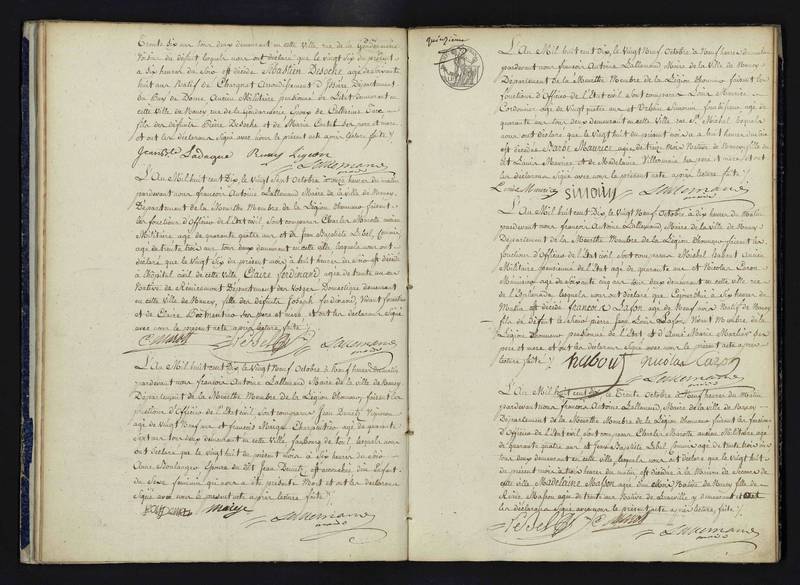 Trente dix ans tous deux demeurant en cette Ville, rue de la Gendarmerie
Voisins du défunt lesquels nous ont déclaré que le vingt six du présent
à Six heures du Soir est décédé Sébastien
huit ans Natif de Arrondissement d'Issoire, Département
du Puy de Dome Ancien Militaire pensionné de l'Etat demeurant en
cette Ville de Nancy rue de la Gendarmerie, Epoux de Catherine
fils des défunts Pierre et de Marie ses pere et mere
et ont les déclarans Signé avec nous le présent acte après lecture faite /.
Lallemand
maire
L'An Mil huit cent Dix, le Vingt Sept Octobre à onze heures du matin
pardevant nous françois Antoine Lallemand Maire de la Ville de Nancy,
Département de la Meurthe Membre de la Légion d'honneur faisant
les fonctions d'Officier de l'Etat civil, sont comparus Charles Marotte ancien
Militaire agé de quarante quatre ans et de Jean Baptiste Lebel,
agé de trente trois ans tous deux demeurant en cette ville lesquels nous ont
déclaré que le Vingt Six du présent mois à huit heures du Soir est décédée
à l'hôpital civil de cette Ville Claire ferdinand agée de trente un ans
Native de Remiremont Département des Vosges Domestique demeurant
en cette Ville de Nancy, fille des défunts Joseph ferdinand, Vivant
et de Claire ses pere et mere, et ont les déclarans Signé
avec nous le présent acte après lecture faite /.
C Marott Lebel Lallemand
maire
L'An Mil huit cent Dix, le Vingt Neuf Octobre à heures du matin
pardevant nous françois Antoine Lallemand Maire de la Ville de Nancy
Département de la Meurthe Membre de la Légion d'honneur faisant les
fonctions d'Officier de l'Etat civil, sont comparus Jean
agé de Vingt Neuf ans et françois Charpentier agé de quarante
Sept ans tous deux demeurant en cette Ville, faubourg de lesquels nous ont
déclaré que le Vingt huit du présent mois à Six heures du Soir
Anne Epouse du dit Jean est accouchée d'un Enfant
du Sexe féminin qui nous a été présenté Mort et ont les déclarans
Signé avec nous le présent acte après lecture faite /.
Lallemand
maire
quinzième
L'An Mil huit cent Dix, le Vingt Neuf Octobre à Neuf heures du matin
pardevant nous françois Antoine Lallemand Maire de la Ville de Nancy
Département de la Meurthe Membre de la Légion d'honneur faisant les
fonctions d'Officier de l'Etat civil sont comparus Louis Maurice
Cordonnier agé de Vingt quatre ans et Urbain Simouy agé de
quarante ans tous deux demeurant en cette Ville rue St. Michel lesquels
nous ont déclaré que le Vingt huit du présent mois à huit heures du Soir
est décédée Barbe Maurice agée de mois Native de Nancy fille du
dit Louis Maurice et de Madelaine ses pere et mere et ont
les déclarans Signé avec nous le présent acte après lecture faite /.
Louis Maurice Simouy Lallemand
maire
L'An Mil huit cent Dix, le Vingt Neuf Octobre, à Dix heures du Matin
pardevant nous françois Antoine Lallemand Maire de la Ville de Nancy
Département de la Meurthe Membre de la Légion d'honneur faisant les
fonctions d'Officier de l'Etat civil sont comparus Michel Habout Ancien
Militaire pensionné de l'Etat agé de quarante ans et Nicolas
agé de soixante cinq ans tous deux demeurant en cette Ville rue
de l'Esplanade lesquels nous ont déclaré que à Six heures du
Matin est décédé françois Lafon agé de Neuf ans Natif de Nancy
fils de défunt Louis Lafon Vivant Membre de la
Légion d'honneur pensionné de l'Etat et d'Anne Marie ses
pere et mere et ont les déclarans Signé avec nous le présent acte après
lecture faite /. habout nicolas
Lallemand
maire
L'An Mil huit cent Dix, le Trente Octobre à Neuf heures du Matin
pardevant nous françois Antoine Lallemand, Maire de la Ville de Nancy
Département de la Meurthe Membre de la Légion d'honneur faisant les fonctions
d'Officier de l'Etat civil, sont comparus Charles Marotte ancien Militaire agé
de quarante quatre ans, et Jean Baptiste Lebel agé de trente trois ans
tous deux demeurant en cette Ville lesquels nous ont déclaré que le Vingt huit
du présent mois à trois heures du matin est décédée à la Maison de Secours de
cette Ville Madelaine Masson agée d'un Mois Native de Nancy fille de
Masson agée de trente ans Native de Lunéville y demeurant et ont
les déclarans Signé avec nous le présent acte après lecture, faite /.
Lebel C Marott Lallemand
maire